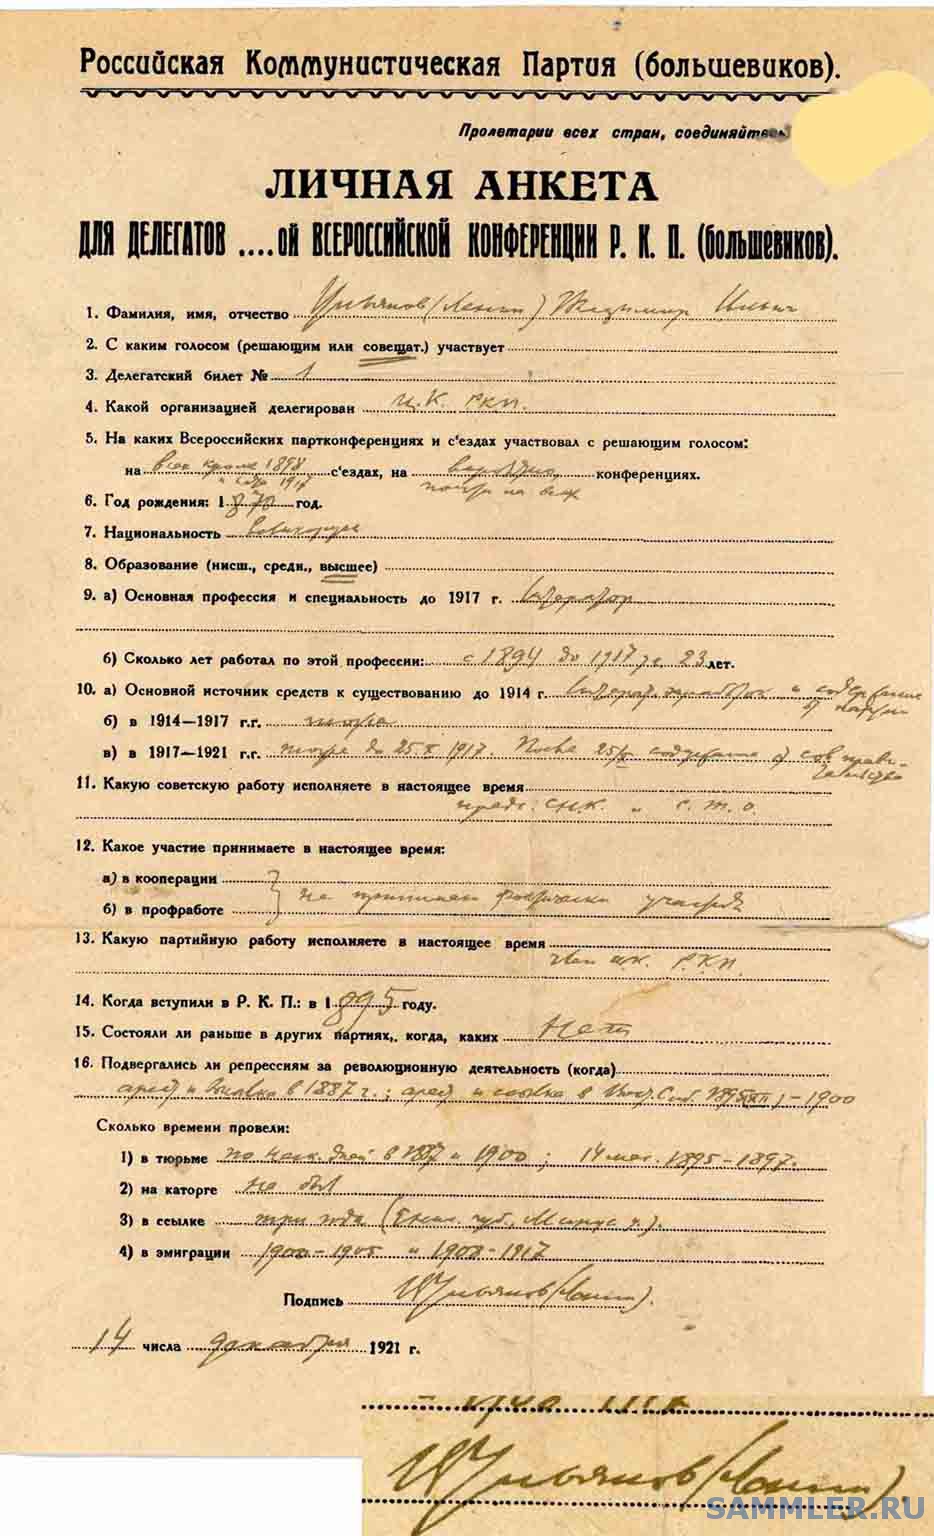 Российская Коммунистическая Партия (большевиков).
Пролетарии всех стран, соединяйтесь
ЛИЧНАЯ АНКЕТА
ДЛЯ ДЕЛЕГАТОВ ....ой ВСЕРОССИЙСКОЙ КОНФЕРЕНЦИИ Р. К. П. (большевиков).
1. Фамилия, имя, отчество Ульянов (Ленин) Владимир Ильич
2. С каким голосом (решающим или совещат.) участвует
3. Делегатский билет № 1
4. Какой организацией делегирован Ц.К. РКП.
5. На каких Всероссийских партконференциях и с'ездах участвовал с решающим голосом:
на всех кроме 1898 с'ездах, на вероятно конференциях.
и 1917 почти на всех
6. Год рождения: 1870 год.
7. Национальность великорусс
8. Образование (нисш., средн., высшее)
9. а) Основная профессия и специальность до 1917 г. литератор
б) Сколько лет работал по этой профессии: с 1894 до 1917 г. 23 лет.
10. а) Основной источник средств к существованию до 1914 г. литерат. заработок и содержание
от партии
б) в 1914—1917 г.г. тоже
в) в 1917—1921 г.г. тоже до 25.X 1917. После 25/X содержание от сов. прави-
тельства
11. Какую советскую работу исполняете в настоящее время
предс. СНК. и С.Т.О.
12. Какое участие принимаете в настоящее время:
а) в кооперации
не принимаю фактически участия
б) в профработе
13. Какую партийную работу исполняете в настоящее время
член ЦК. РКП.
14. Когда вступили в Р. К. П.: в 1895 году.
15. Состояли ли раньше в других партиях, когда, каких Нет
16. Подвергались ли репрессиям за революционную деятельность (когда)
арест и высылка в 1887 г.; арест и ссылка в Вост. Сиб. 1895 (XII) - 1900
Сколько времени провели:
1) в тюрьме по неск. дней в 1887 и 1900; 14 мес. 1895-1897.
2) на каторге не был
3) в ссылке три года (Енис. губ., Минус. у.).
4) в эмиграции 1900-1905 и 1908-1917
Подпись В Ульянов (Ленин).
14 числа декабря 1921 г.
В Ульянов (Ленин).
SAMMLER.RU